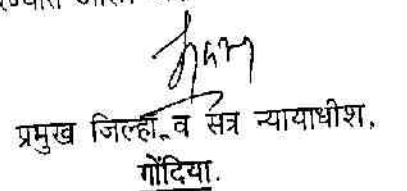 प्रमुख जिल्हा व सत्र न्यायाधीश,
गोंदिया.